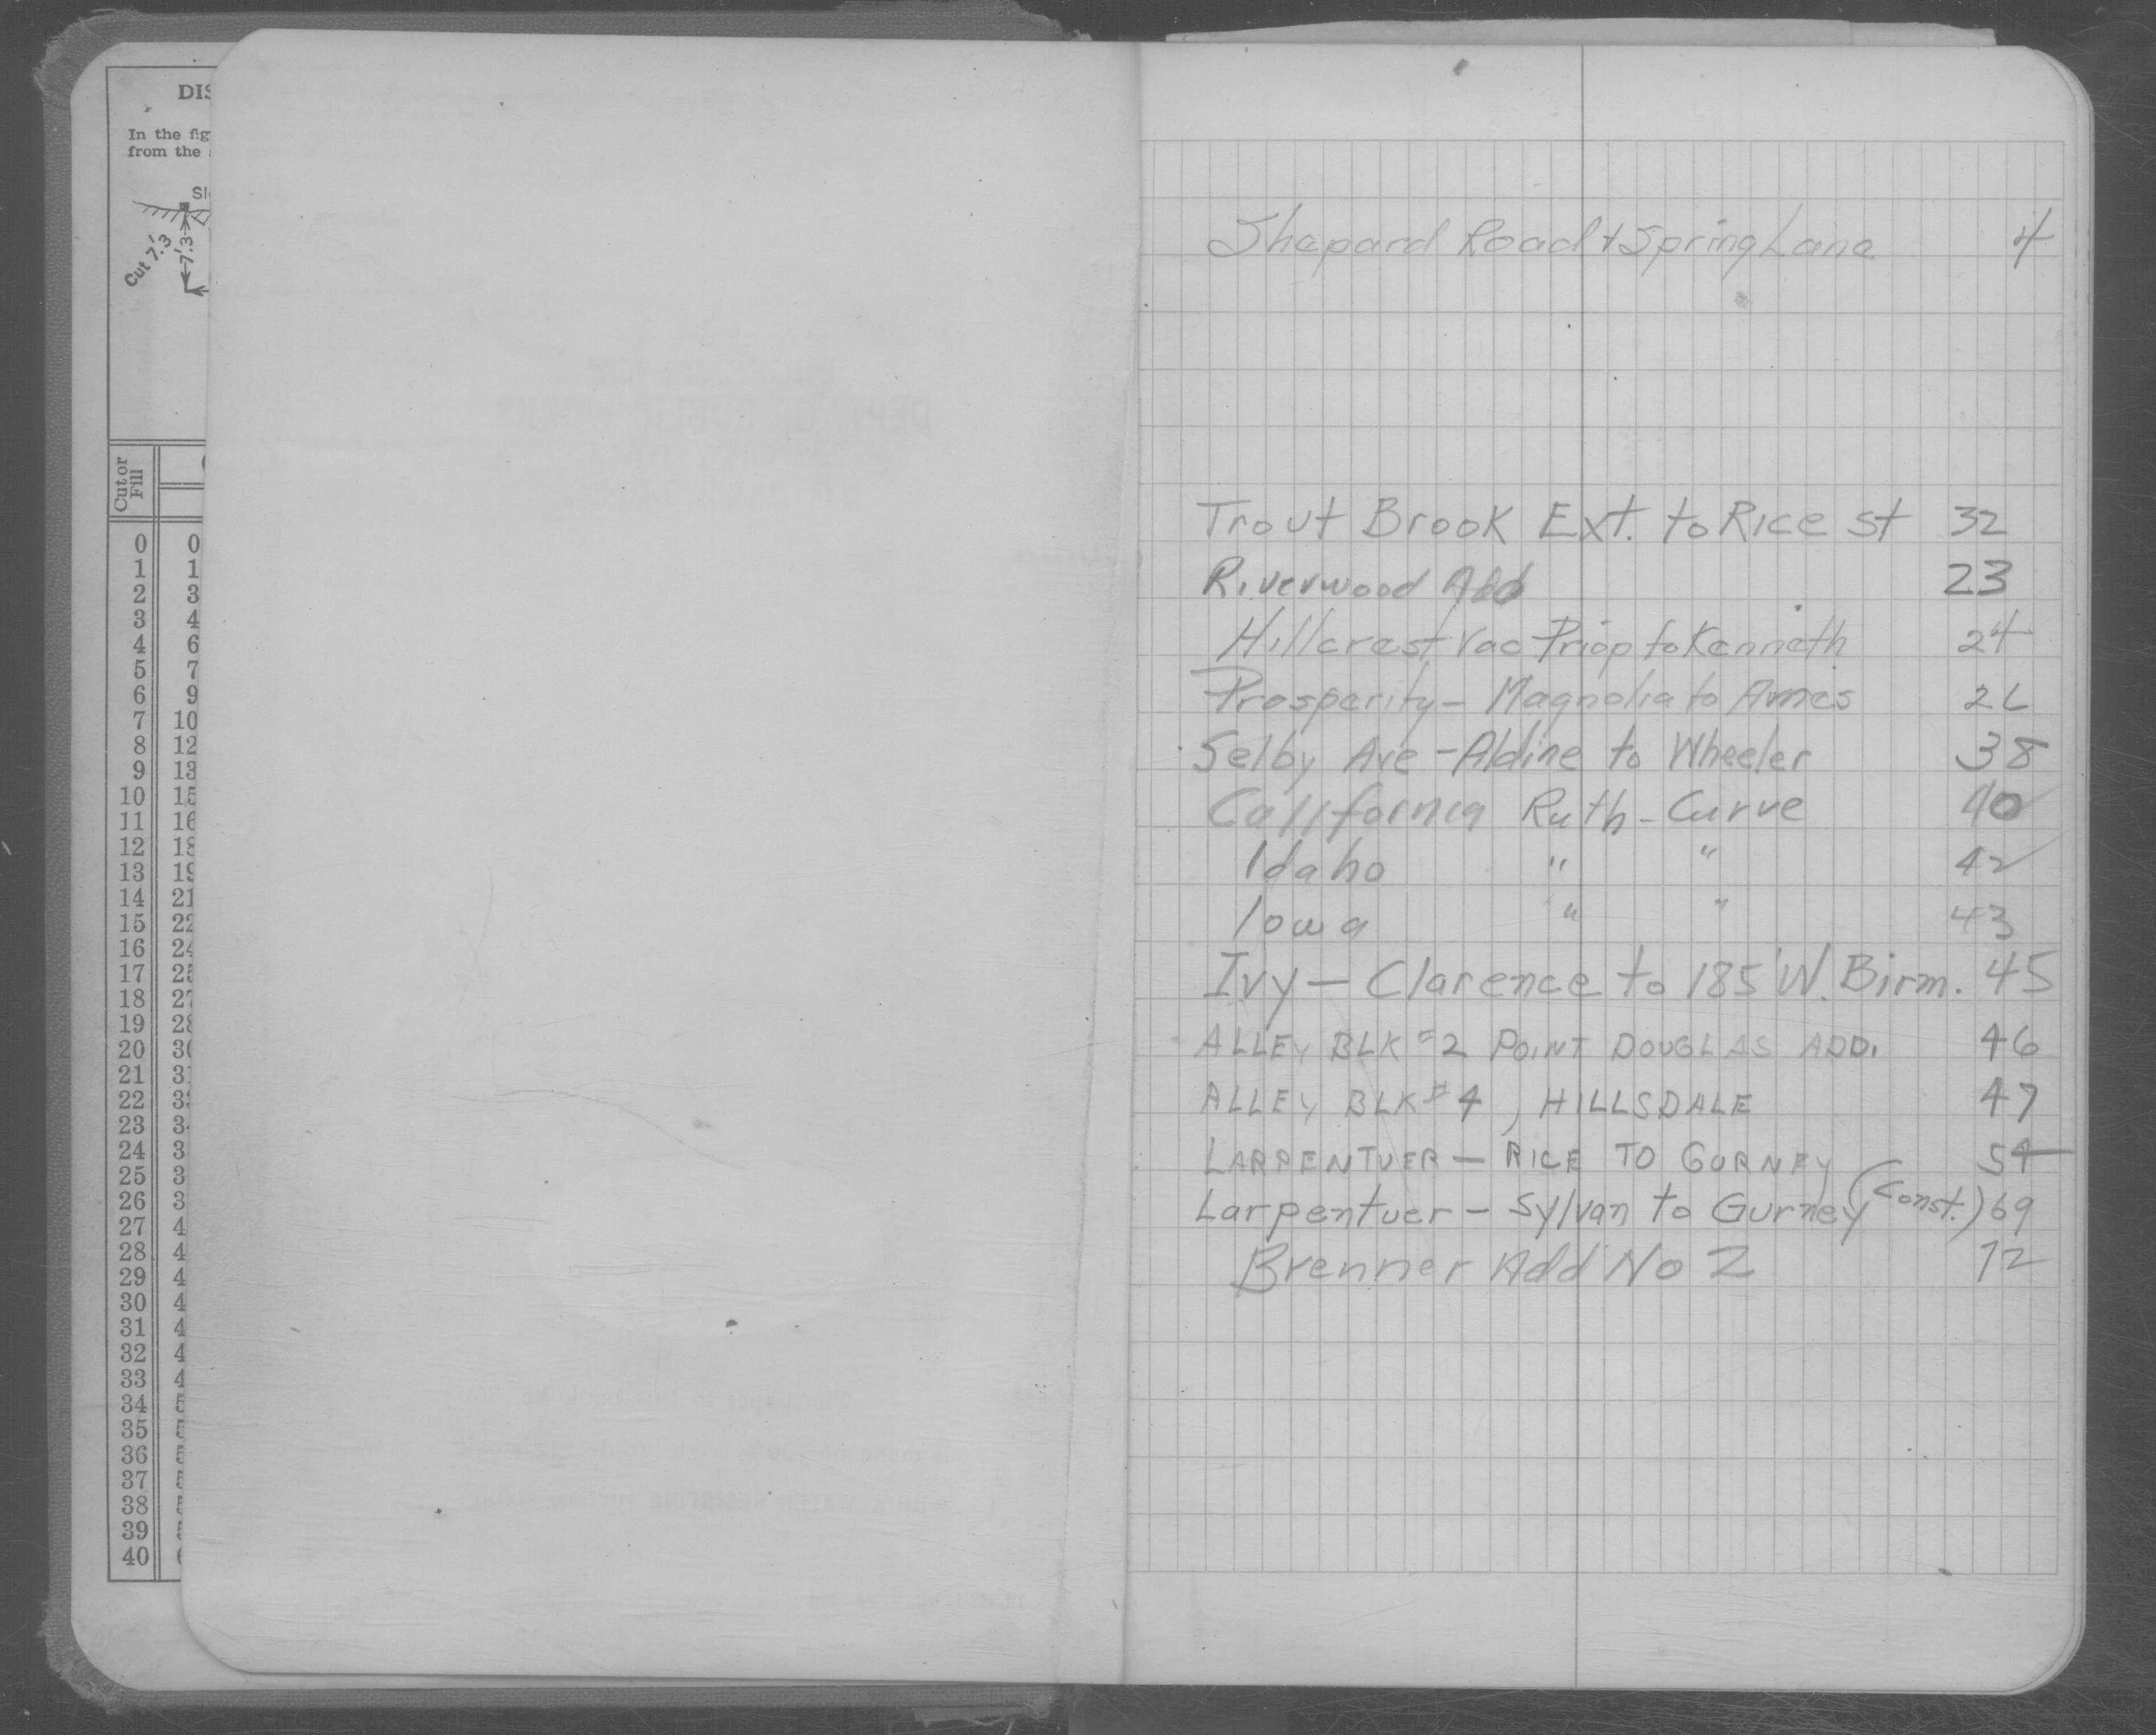 DIS
In the fig
from the
Sl
Cut 7.3
7.3
Cut or
Fill
0 0
1 1
2 3
3 4
4 6
5 7
6 9
7 10
8 12
9 13
10 15
11 16
12 18
13 19
14 21
15 22
16 24
17 25
18 27
19 28
20 30
21 31
22 33
23 34
24 3
25 3
26 3
27 4
28 4
29 4
30 4
31 4
32 4
33 4
34 5
35 5
36 5
37 5
38 5
39 5
40 6
Shepard Road & Spring Lane 4
Trout Brook Ext. to Rice st 32
Riverwood Add 23
Hillcrest Vac Prior to Kenneth 24
Prosperity - Magnolia to Ames 26
Selby Ave - Aldine to Wheeler 38
California Ruth - Curve 40
Idaho " " 42
Iowa " " 43
Ivy - Clarence to 185' W. Birm. 45
ALLEY BLK #2 POINT DOUGLAS ADD. 46
ALLEY BLK #4, HILLSDALE 47
LARPENTUER - RICE TO GURNEY 54
Larpentuer - Sylvan to Gurney (Const.) 69
Brenner Add No 2 72